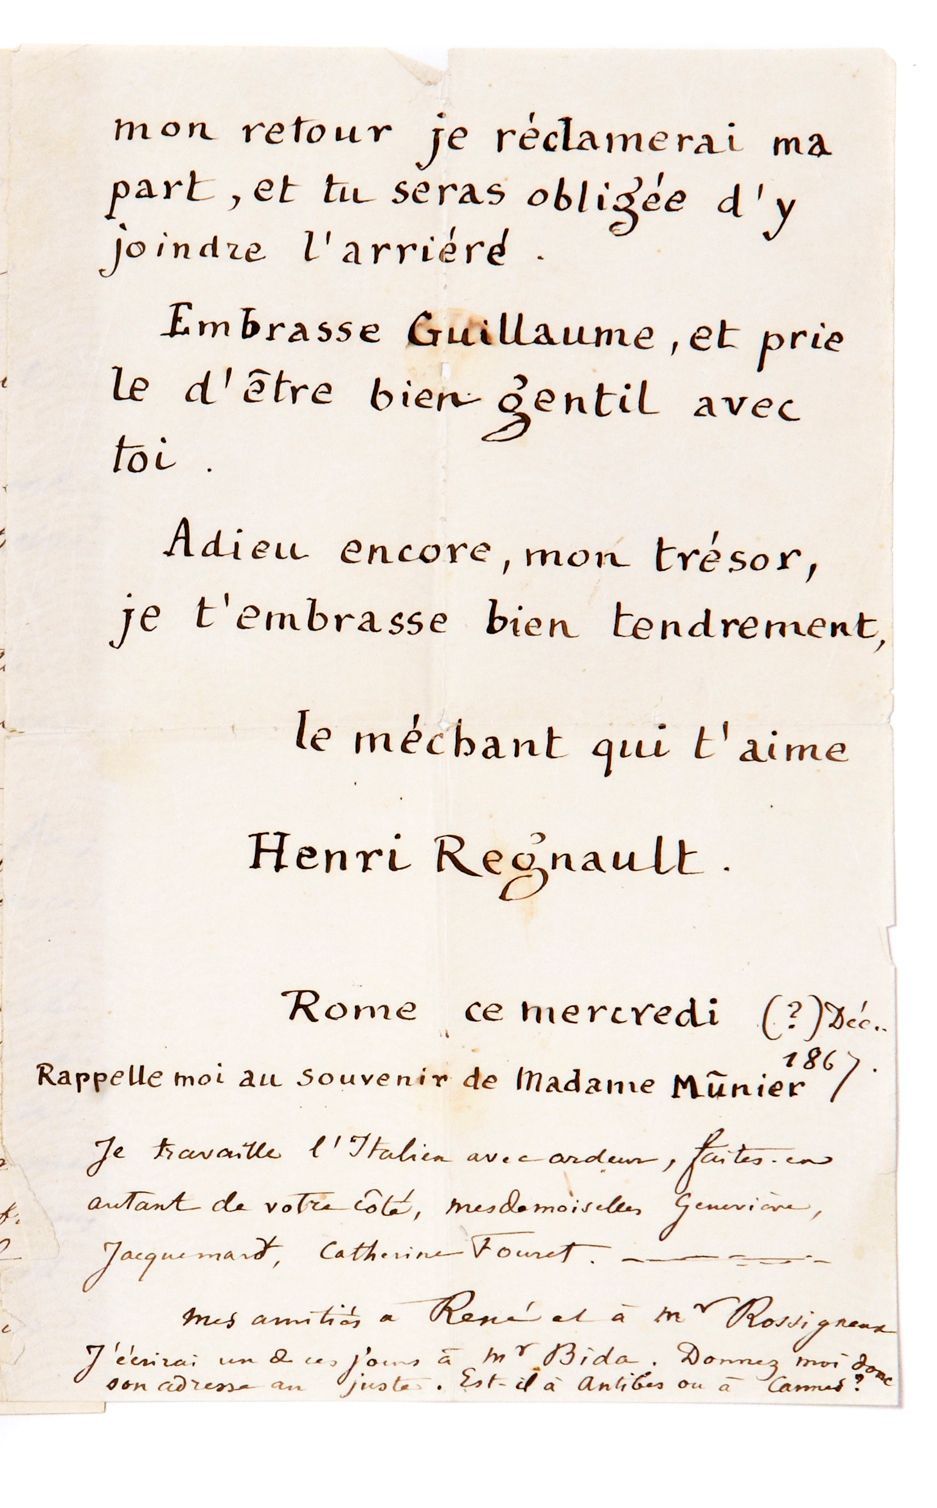 mon retour je réclamerai ma
part, et tu seras obligée d'y
joindre l'arriéré.
Embrasse Guillaume, et prie
le d'être bien gentil avec
toi.
Adieu encore, mon trésor,
je t'embrasse bien tendrement,
le méchant qui t'aime
Henri Regnault.
Rome ce mercredi (?) Déc..
1867.
Rappelle moi au souvenir de Madame Mūnier
Je travaille l'Italien avec ardeur, faites-en
autant de votre côté, mesdemoiselles Geneviève,
Jacquemart, Catherine Fouret.
mes amitiés à René et à Mr Rossigneux
J'écrirai un de ces jours à Mr Bida. Donnez moi donc
son adresse au juste. Est-il à Antibes ou à Cannes?